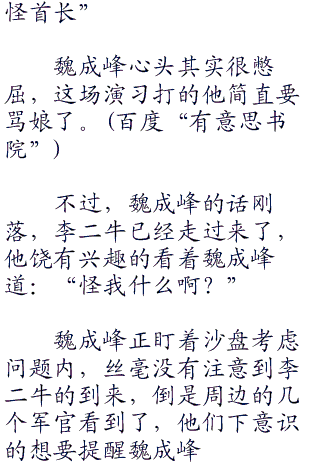 怪首长”
魏成峰心头其实很憋
屈，这场演习打的他简直要
骂娘了。(百度“有意思书
院”)
不过，魏成峰的话刚
落，李二牛已经走过来了，
他饶有兴趣的看着魏成峰
道：“怪我什么啊？”
魏成峰正盯着沙盘考虑
问题内，丝毫没有注意到李
二牛的到来，倒是周边的几
个军官看到了，他们下意识
的想要提醒魏成峰